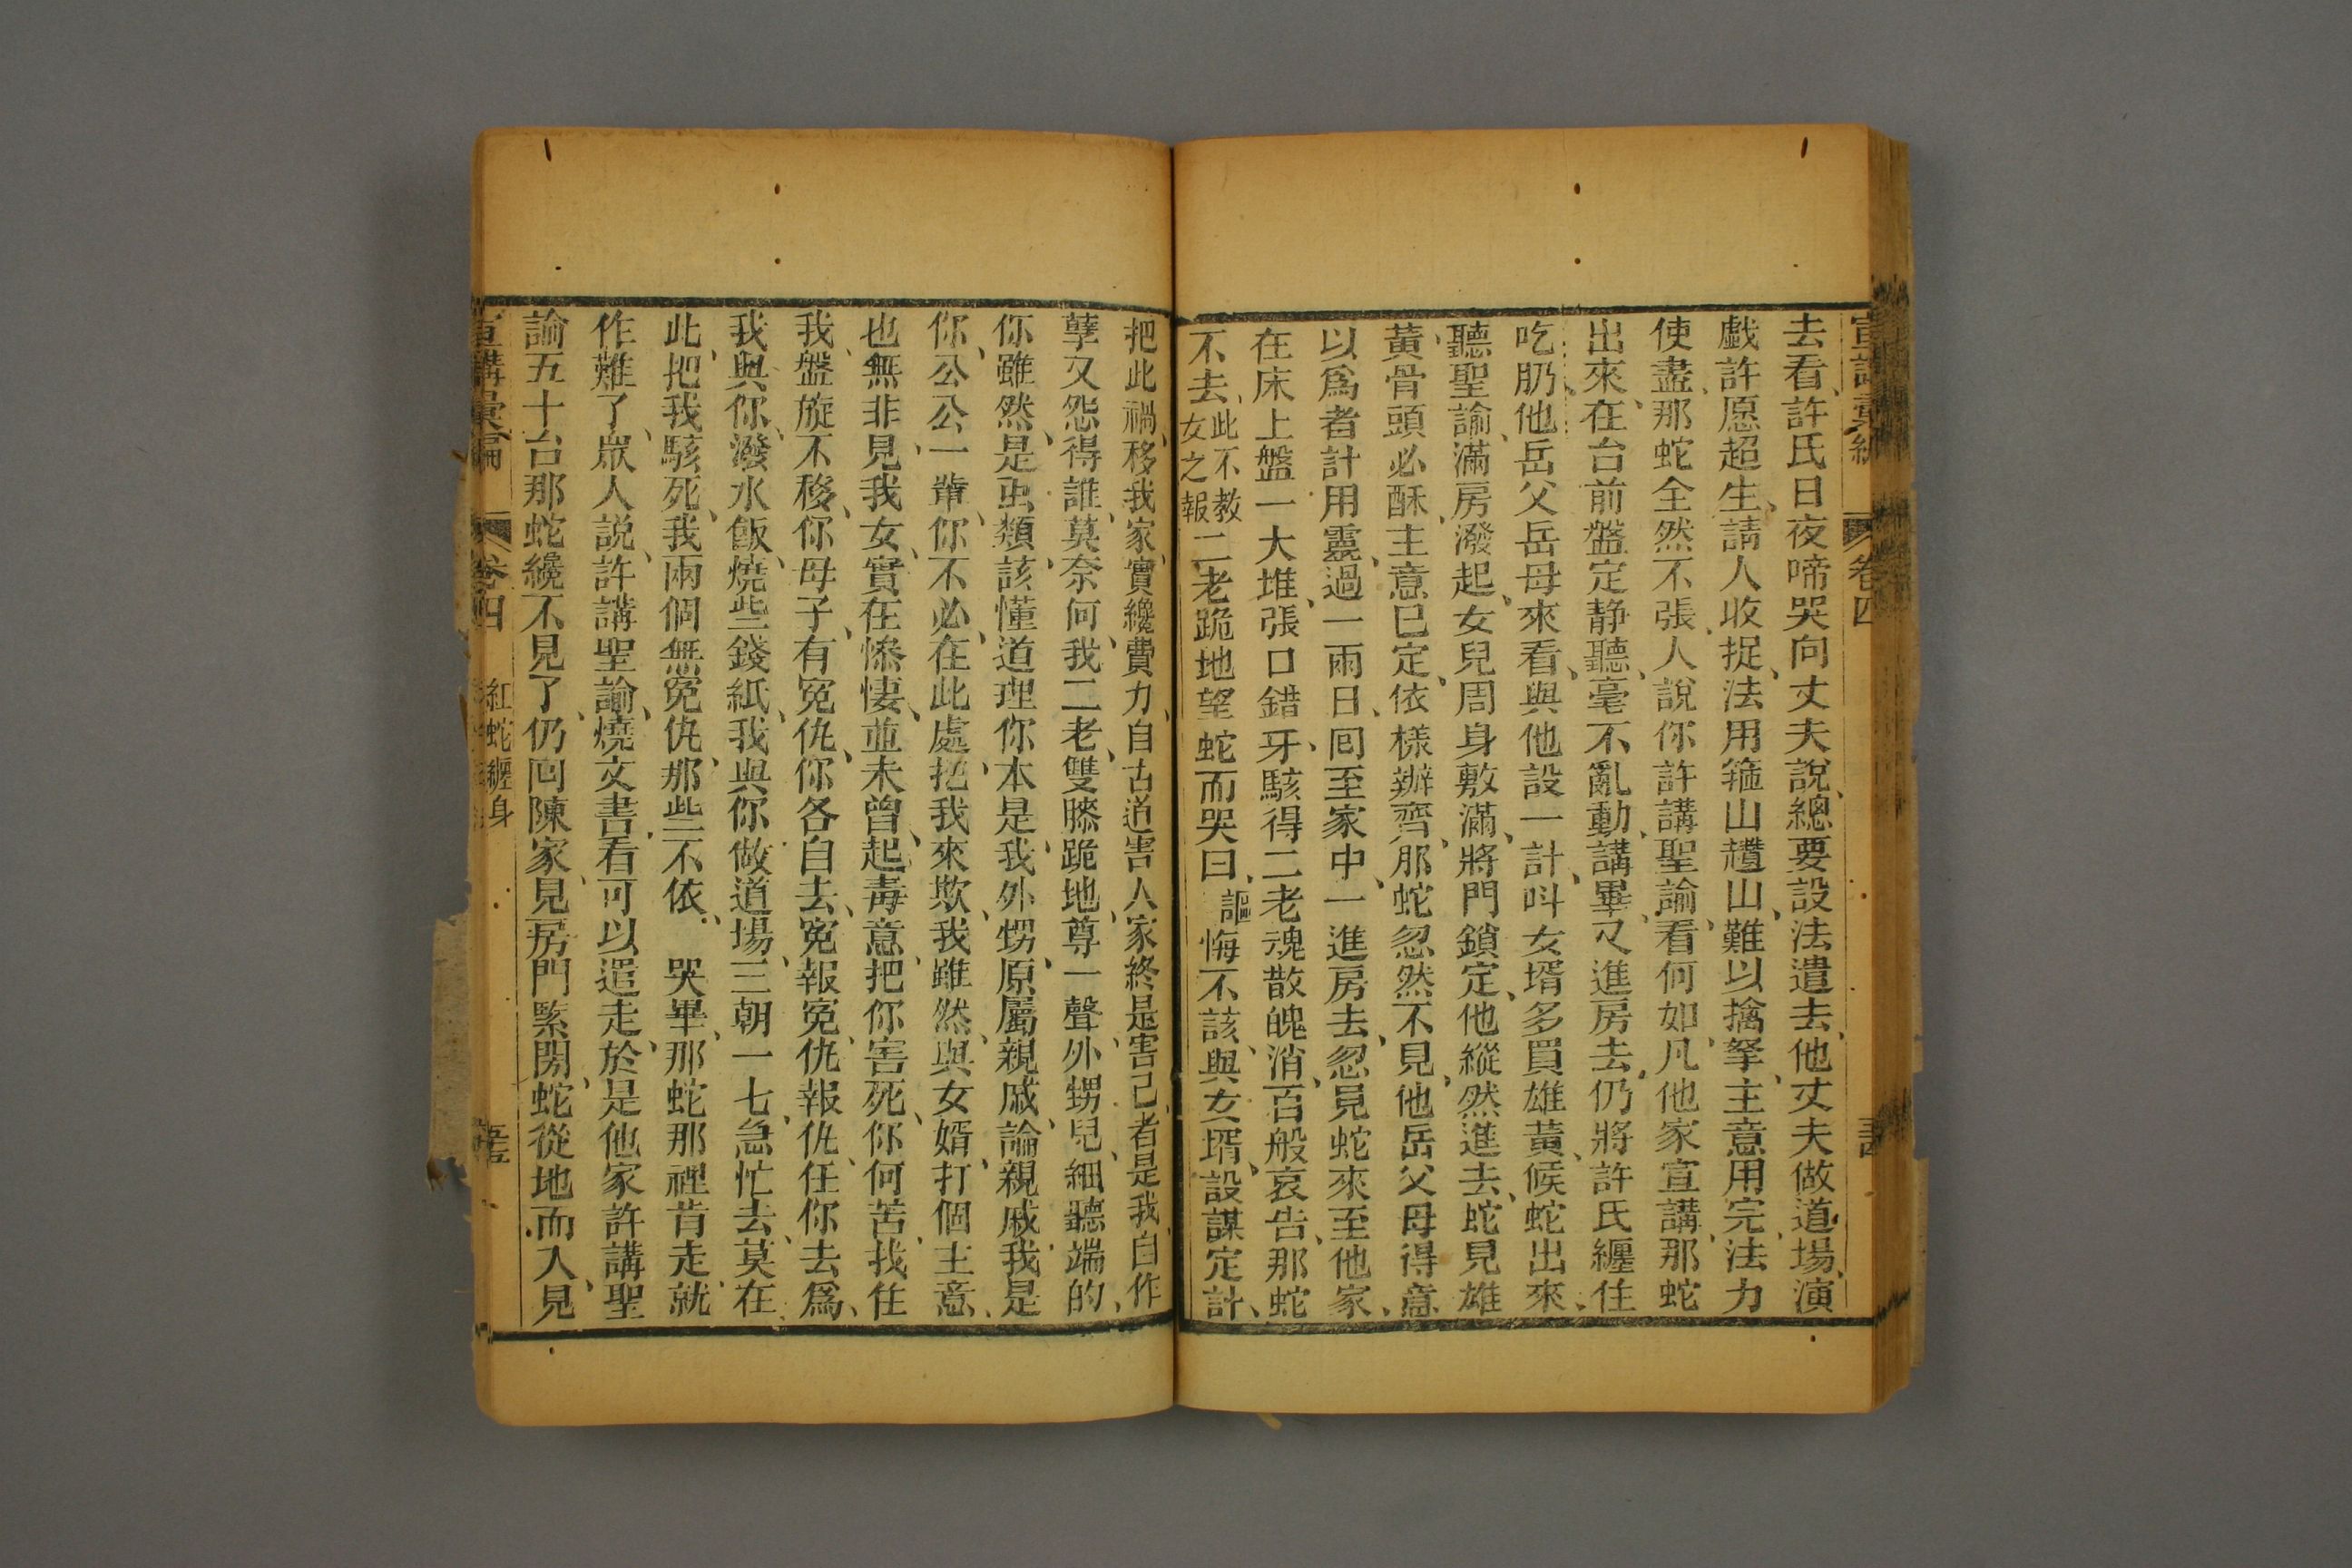 宣講彙編 卷四
去看、許氏日夜啼哭向丈夫說、總要設法遣去、他丈夫做道場、演
戲許愿超生、請人收捉、法用箍山趲山、難以擒拏、主意用完、法力
使盡、那蛇全然不張、人說你許講聖諭、看何如、凡他家宣講、那蛇
出來、在台前盤定静聽、毫不亂動、講畢又進房去、仍將許氏纏住
吃肕、他岳父岳母來看、與他設一計、呌女壻多買雄黃、候蛇出來、
聽聖諭、滿房潑起、女兒周身敷滿、將門鎖定、他縱然進去、蛇見雄
黃、骨頭必酥、主意已定、依樣辦齊、那蛇忽然不見、他岳父母得意
以爲者計用靈、過一兩日、囘至家中、一進房去、忽見蛇來至他家、
在床上盤一大堆、張口錯牙、駭得二老魂散魄消、百般哀告、那蛇
不去、此不教女之報 二老跪地望蛇而哭曰、謳 悔不該、與女壻、設謀定計、
把此禍、移我家、實纔費力、自古道害人家終是害己、者是我、自作
孽又怨得誰、莫奈何、我二老、雙膝跪地、尊一聲、外甥兒、細聽端的、
你雖然、是虫類、該懂道理、你本是、我外甥、原屬親戚、論親戚、我是
你、公公一輩、你不必、在此處、挋我來欺、我雖然、與女婿、打個主意、
也無非、見我女、實在慘悽、並未曾、起毒意、把你害死、你何苦、找住
我、盤旋不移、你母子、有冤仇、你各自去、冤報冤、仇報仇、任你去爲、
我與你、潑水飯、燒些錢紙、我與你、做道場、三朝一七、急忙去、莫在
此、把我駭死、我兩個、無冤仇、那些不依、哭畢、那蛇那裡肯走、就
作難了、眾人説、許講聖諭、燒文書、看可以遣走、於是他家許講聖
諭五十台、那蛇纔不見了、仍囘陳家、見房門緊閉、蛇從地而入、見
宣講彙編 卷四 紅蛇纏身